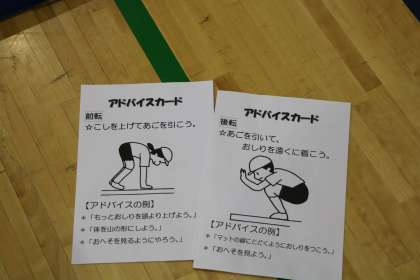 アドバイスカード
前転
☆こしを上げてあごを引こう。
【アドバイスの例】
＊「もっとおしりを頭より上げよう。」
＊「体を山の形にしよう。」
＊「おへそを見るようにやろう。」
アドバイスカード
後転
☆あごを引いて、
おしりを遠くに着こう。
【アドバイスの例】
＊「マットの線にとどくようにおしりをつこう。」
＊「おへそを見よう。」